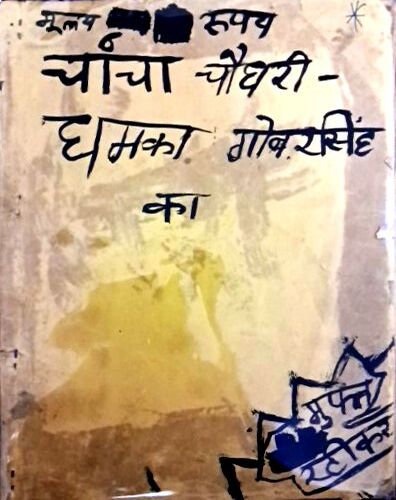 मूल्य रूपय
चाँचा चौधरी -
धमका गोबरसिंह
का
मुफ्त
स्टीकर